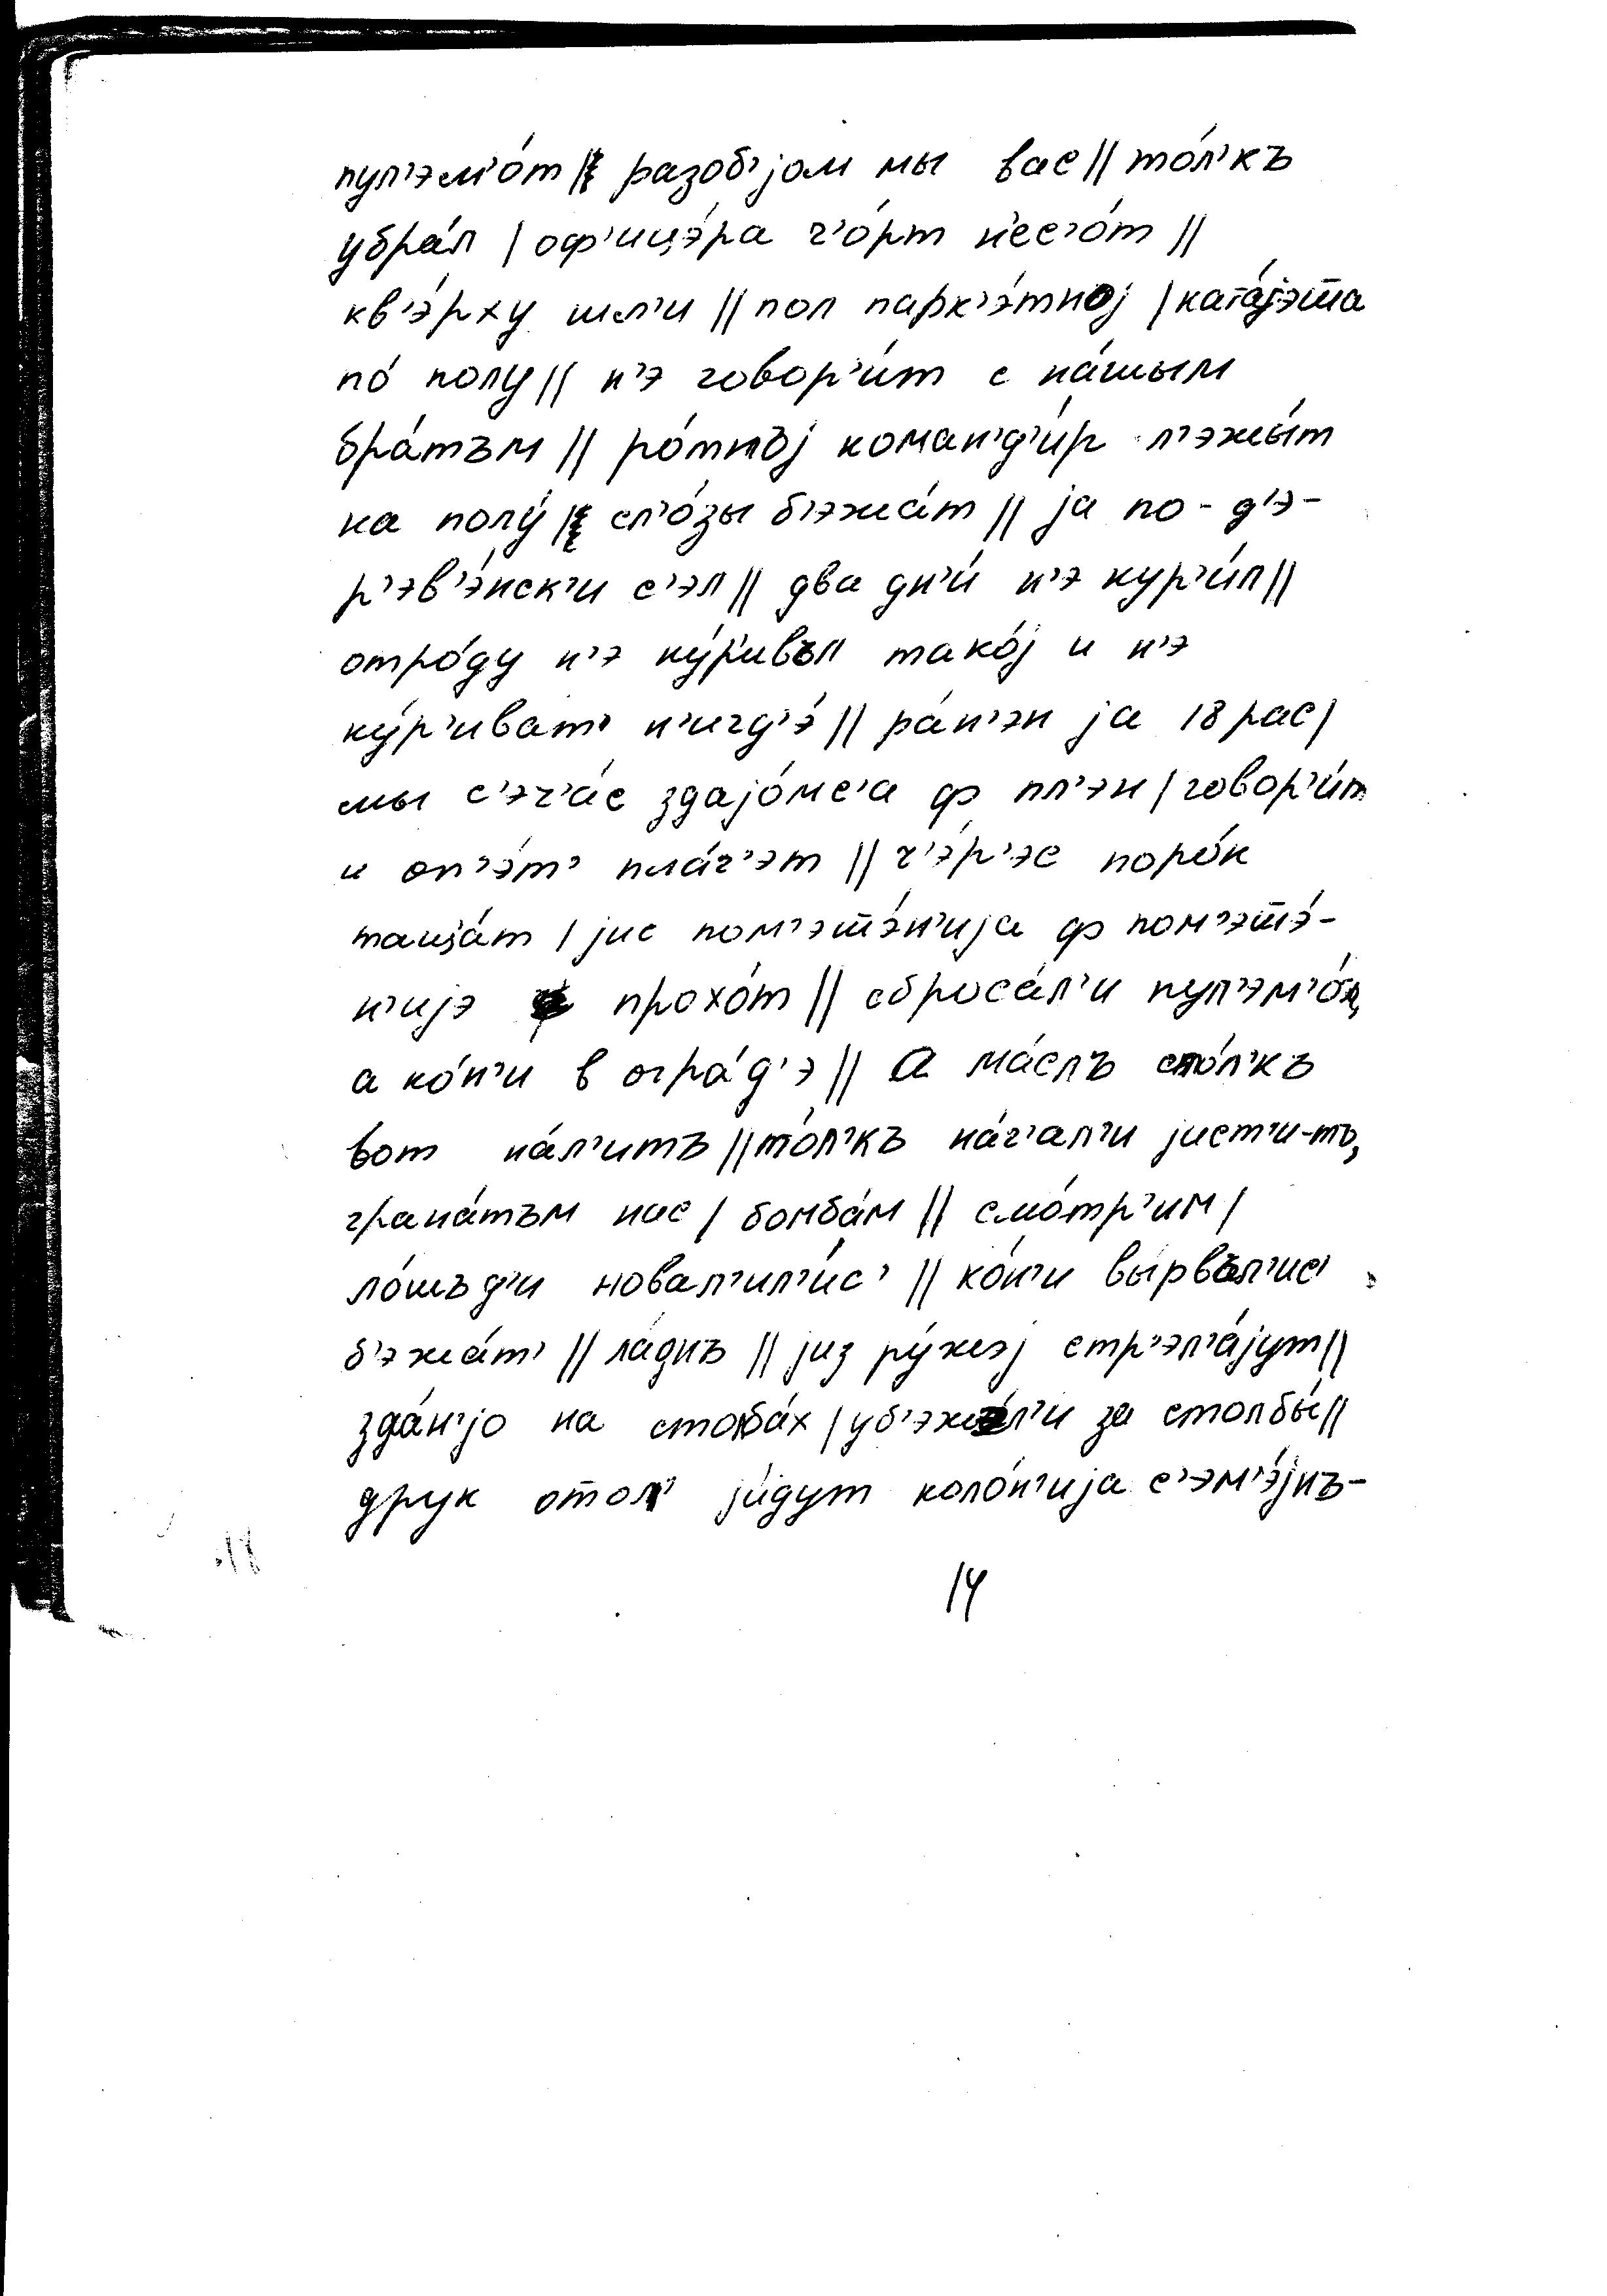 пул'эм'о́т || разоб'jом мы вас || то́л'къ
убра́л | оф'ицэ́ра ч'о́рт н'ес'о́т ||
кв'э́рху шл'и || пол парк'э́тноj | ката́jэт̅а
по́ полу || н'э говор'и́т с на́шым
бра́тъм || ро́тнъj коман'д'и́р л'эжы́т
на полу́ || сл'о́зы б'эжа́т || jа по-д'э-
р'эв'э́нск'и с'эл || два дн'и́ н'э кур'и́л ||
отро́ду н'э ку́р'ивъл тако́j и н'э
ку́р'иват' н'игд'э́ || ра́н'эн jа 18 рас |
мы с'эч'а́с здаjо́мс'а ф пл'эн | говор'и́т
и оп'э́т' пла́ч'эт || ч'э́р'эс поро́к
таща́т | jис пом'эш̅э́н'иjа ф пом'эш̅э́-
н'иjэ прохо́т || сброса́л'и пул'эм'о́т,
а ко́н'и в огра́д'э || А ма́слъ сто́л'къ
вот на́л'итъ || то́л'къ на́ч'ал'и jист'и-тъ,
грана́тъм нас | бомба́м || смо́тр'им |
ло́шъд'и повал'ил'и́с' || ко́н'и вы́рвъл'ис'
б'эжа́т' || ла́днъ || jиз ру́жэj стр'эл'а́jут ||
зда́н'jо на столба́х | уб'эжа́л'и за столбы́ ||
друк отол' jи́дут коло́н'иjа с'эм'э́jнъ-
14